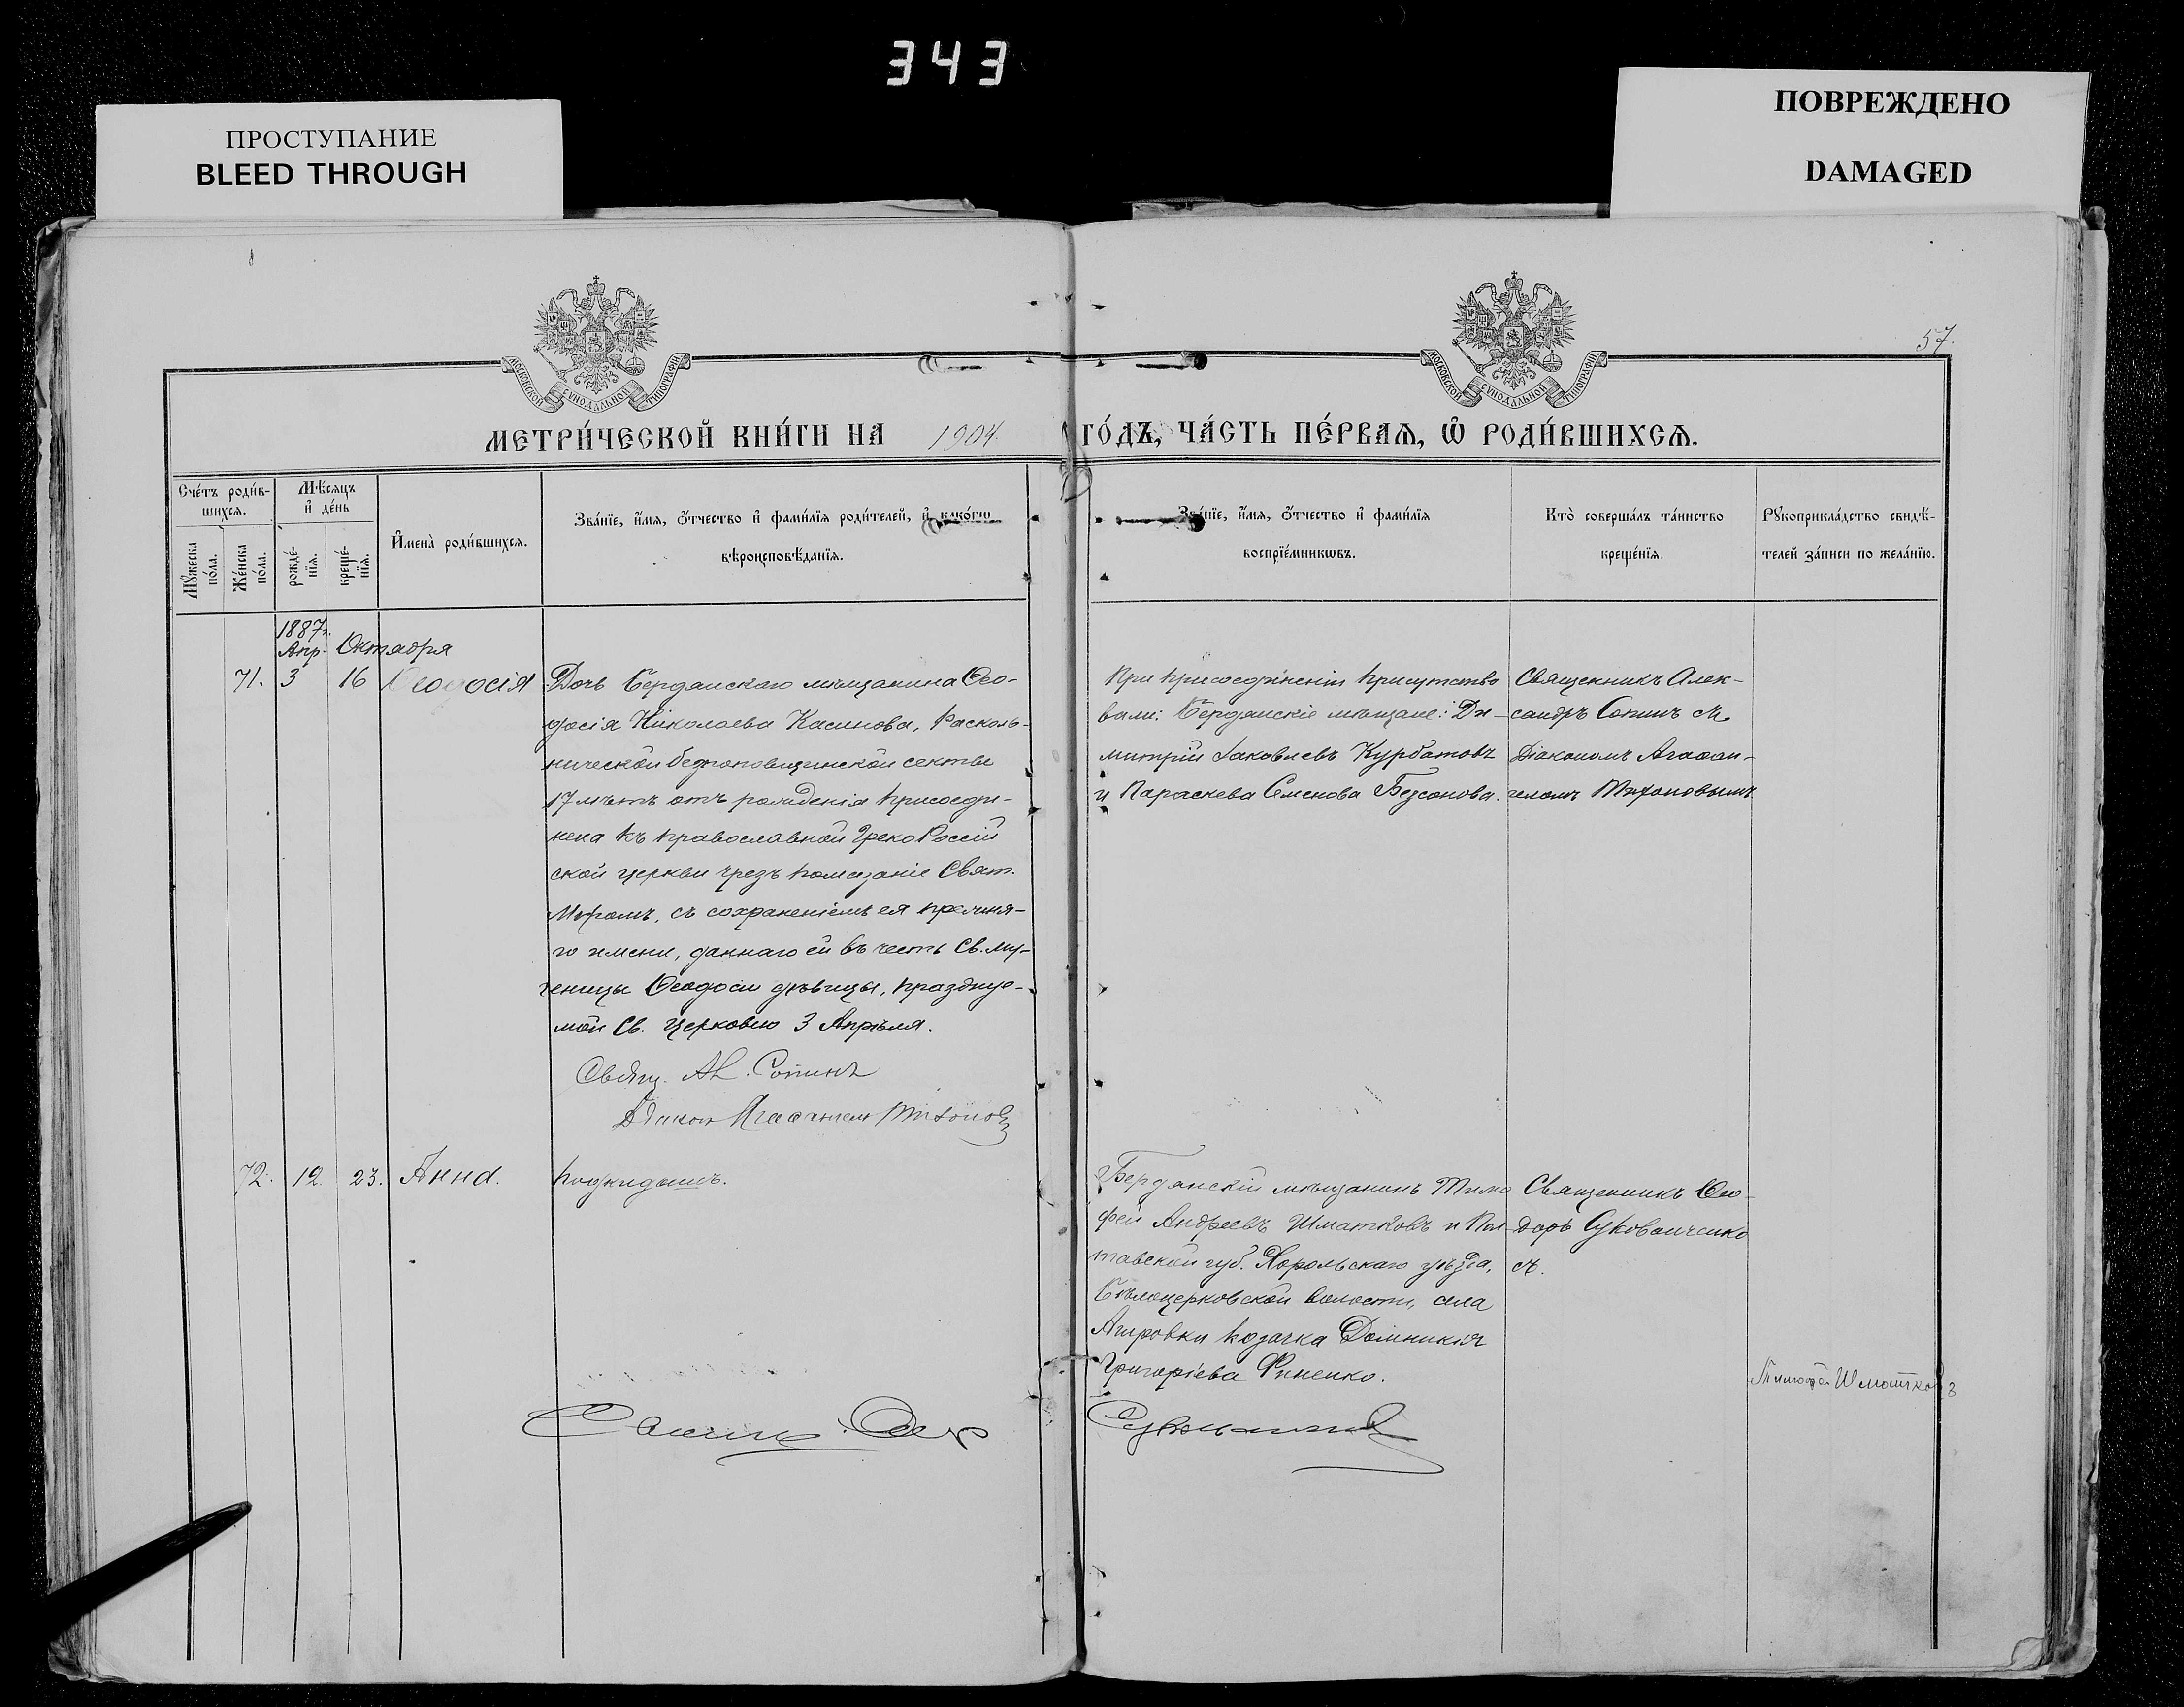 343
ПРОСТУПАНИЕ
BLEED THROUGH
ПОВРЕЖДЕНО
DAMAGED
57.
МОСКОВСКОЙ СѴНОДАЛЬНОЙ ТИПОГРАФІИ
МОСКОВСКОЙ СѴНОДАЛЬНОЙ ТИПОГРАФІИ
МЕТРИ́ЧЕСКОЙ КНИ́ГИ НА 1904. ГО́ДЪ, ЧА́СТЬ ПЕ́РВАѦ, Ѡ РОДИ́ВШИХСѦ.
Сче́тъ роди́в-
шихсѧ.
Мꙋ́жеска по́ла.
Же́нска по́ла.
Мѣ́сѧцъ
и҆ де́нь
рожде́-
нїѧ.
креще́-
нїѧ.
И҆мена̀ роди́вшихсѧ.
Зва́нїе, и҆́мѧ, ѻ҆́тчество и҆ фами́лїѧ роди́телей, и҆ како́гѡ
вѣроисповѣ́данїѧ.
Зва́нїе, и҆́мѧ, ѻ҆́тчество и҆ фами́лїѧ
воспрїе́мникѡвъ.
Кто̀ соверша́лъ та́инство
креще́нїѧ.
Рꙋкоприкла́дство свидѣ́-
телей за́писи по жела́нїю.
1887г.
Апр. Октября
71. 3 16 Ѳеодосія
Дочь Бердянскаго мѣщанина Ѳео-
досія Николаева Касинова, расколь-
нической безпоповщинской секты
17 лѣтъ отъ рожденія присоеди-
нена къ православной Греко Россій
ской церкви чрезъ помазаніе Свят.
Мѵромъ, съ сохраненіемъ ея прежня-
го имени, даннаго ей въ честь Св. му-
ченицы Ѳеодосіи дѣвицы, празднуе-
мой Св. Церковью 3 Апрѣля.
Свящ. Ал. Сопинъ
Діаконъ Агаѳангелъ Тихоновъ
При присоединеніи присутство
вали: Бердянскіе мѣщане: Ди-
митрій Іаковлевъ Курбатовъ
и Параскева Семенова Безсонова.
Священникъ Алек-
сандръ Сопинъ съ
Діакономъ Агаѳан-
геломъ Тихоновымъ
72. 12. 23. Анна.
подкидышъ.
Бердянскій мѣщанинъ Тимо
фей Андреевъ Шматковъ и Пол
тавской губ. Хорольскаго уѣзда,
Бѣлоцерковской волости, села
Агировки козачка Домникія
Григоріева Финенко.
Священникъ Ѳео-
доръ Сукованченко
съ.
Тимофей Шматковъ